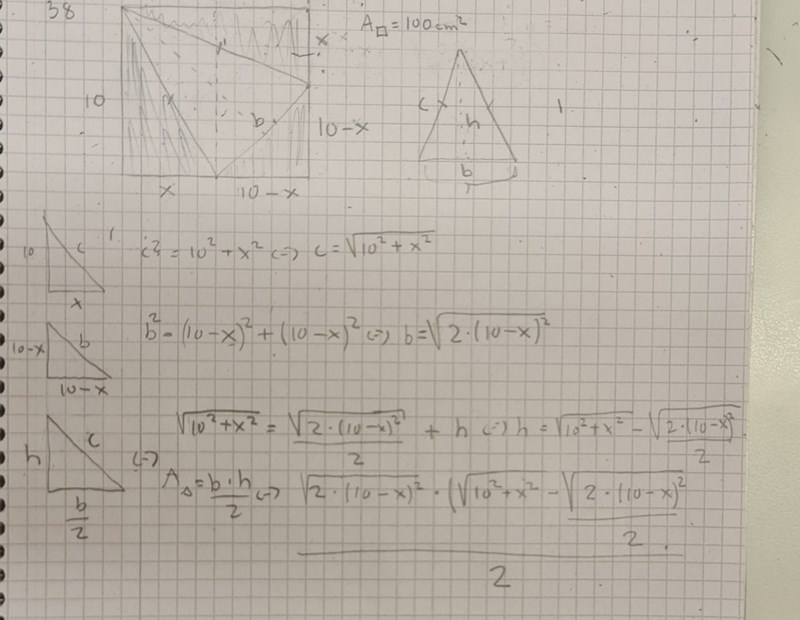 38
A□ = 100 cm²
x
10
b
10-x
x 10-x
c
h
b
10
c
x
c² = 10² + x² <-> c = √(10² + x²)
10-x
b
10-x
b² = (10-x)² + (10-x)² <-> b = √(2·(10-x)²)
√(10²+x²) = √(2·(10-x)²)/2 + h <-> h = √(10²+x²) - √(2·(10-x)²)/2
h
c
b/2
<->
A△ = b·h/2 <-> √(2·(10-x)²) · (√(10²+x²) - √(2·(10-x)²)/2
2